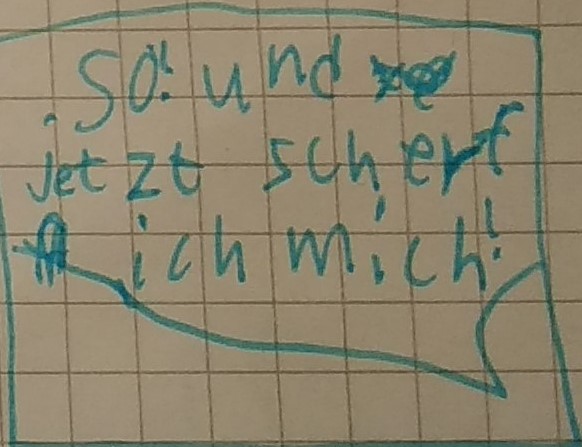 SO! und
jetzt scherf
ich mich!